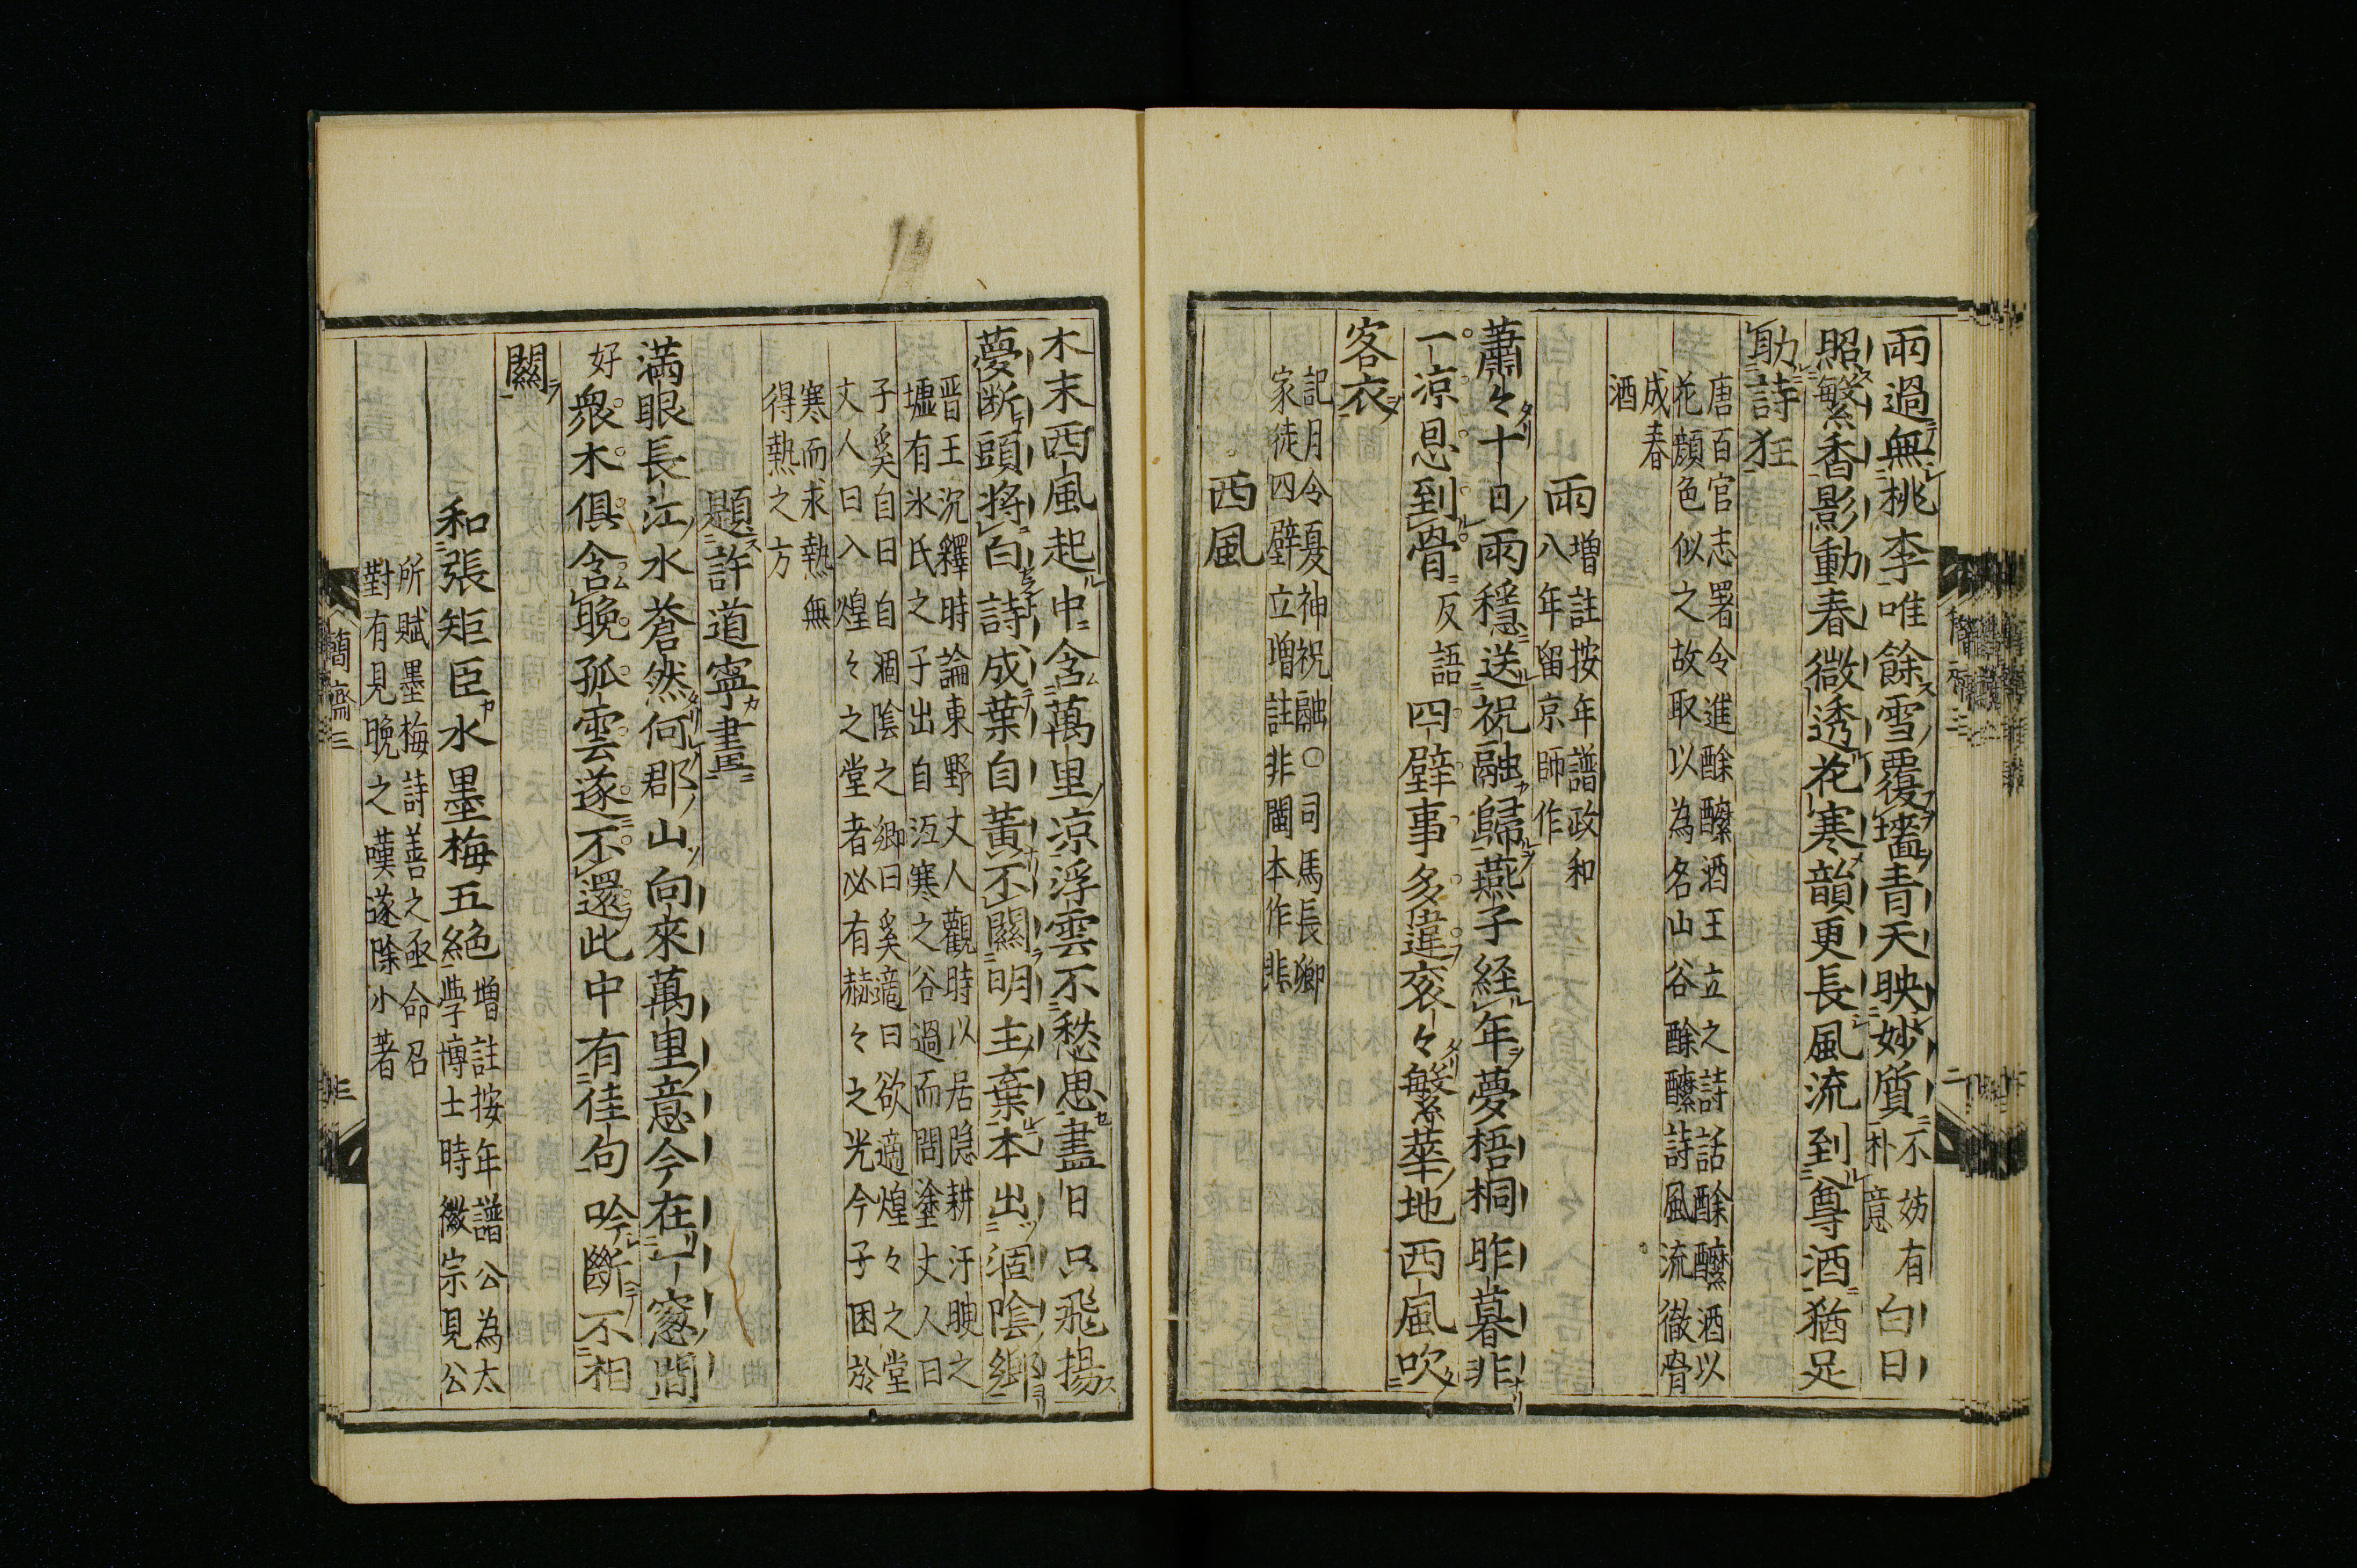 雨過無桃李唯餘雪覆墻青天映妙質不妨有朴意白日
照繁香影動春微透花寒韻更長風流到尊酒猶足
助詩狂
唐百官志署令進酴醾酒王立之詩話酴醾酒以
花顔色似之故取以為名山谷酴醾詩風流徹骨
成春
酒
雨増註按年譜政和八年留京師作
蕭々十日雨穩送祝融歸燕子経年夢梧桐昨暮非
一凉恩到骨反語四壁事多違衮々繁華地西風吹
客衣
記月令夏神祝融〇司馬長卿
家徒四壁立増註非閩本作悲
西風
木末西風起中含萬里凉浮雲不愁思盡日只飛揚
夢断頭將白詩成葉自黄不關明主棄本出涸陰郷
晋王沉釋時論東野丈人觀時以居隠耕汙腴之
墟有氷氏之子出自沍寒之谷過而問塗丈人曰
子奚自曰自涸陰之郷曰奚適曰欲適煌々之堂
丈人曰入煌々之堂者必有赫々之光今子困於
寒而求熱無
得熱之方
題許道寧畫
満眼長江水蒼然何郡山向來萬里意今在一窓間
好衆木俱含晩孤雲遂不還此中有佳句吟斷不相
關
和張矩臣水墨梅五絶増註按年譜公為太学博士時徽宗見公
所賦墨梅詩善之亟命召
對有見晩之嘆遂除小著
簡齋三
三